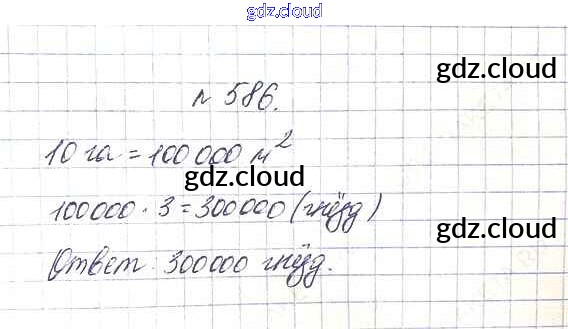 gdz.cloud
gdz.cloud
№ 586.
10 га = 100 000 м²
gdz.cloud
100000 · 3 = 300000 (гнёзд)
gdz.cloud
Ответ: 300000 гнёзд.